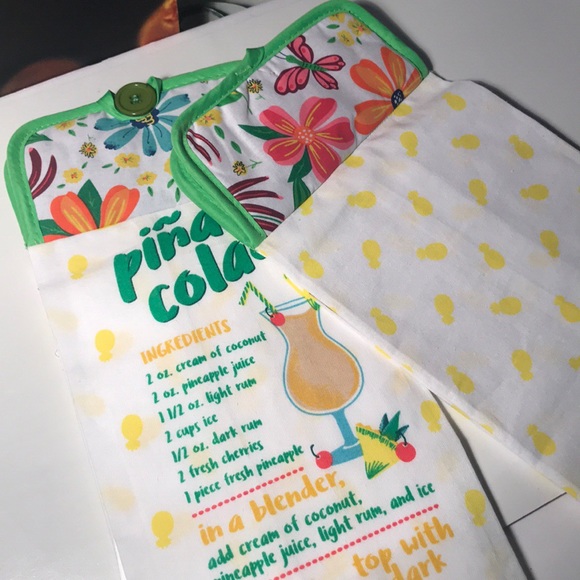 piña
cola
INGREDIENTS
2 oz. cream of coconut
2 oz. pineapple juice
1 1/2 oz. light rum
2 cups ice
1/2 oz. dark rum
2 fresh cherries
1 piece fresh pineapple
in a blender,
add cream of coconut,
pineapple juice, light rum, and ice
top with
dark